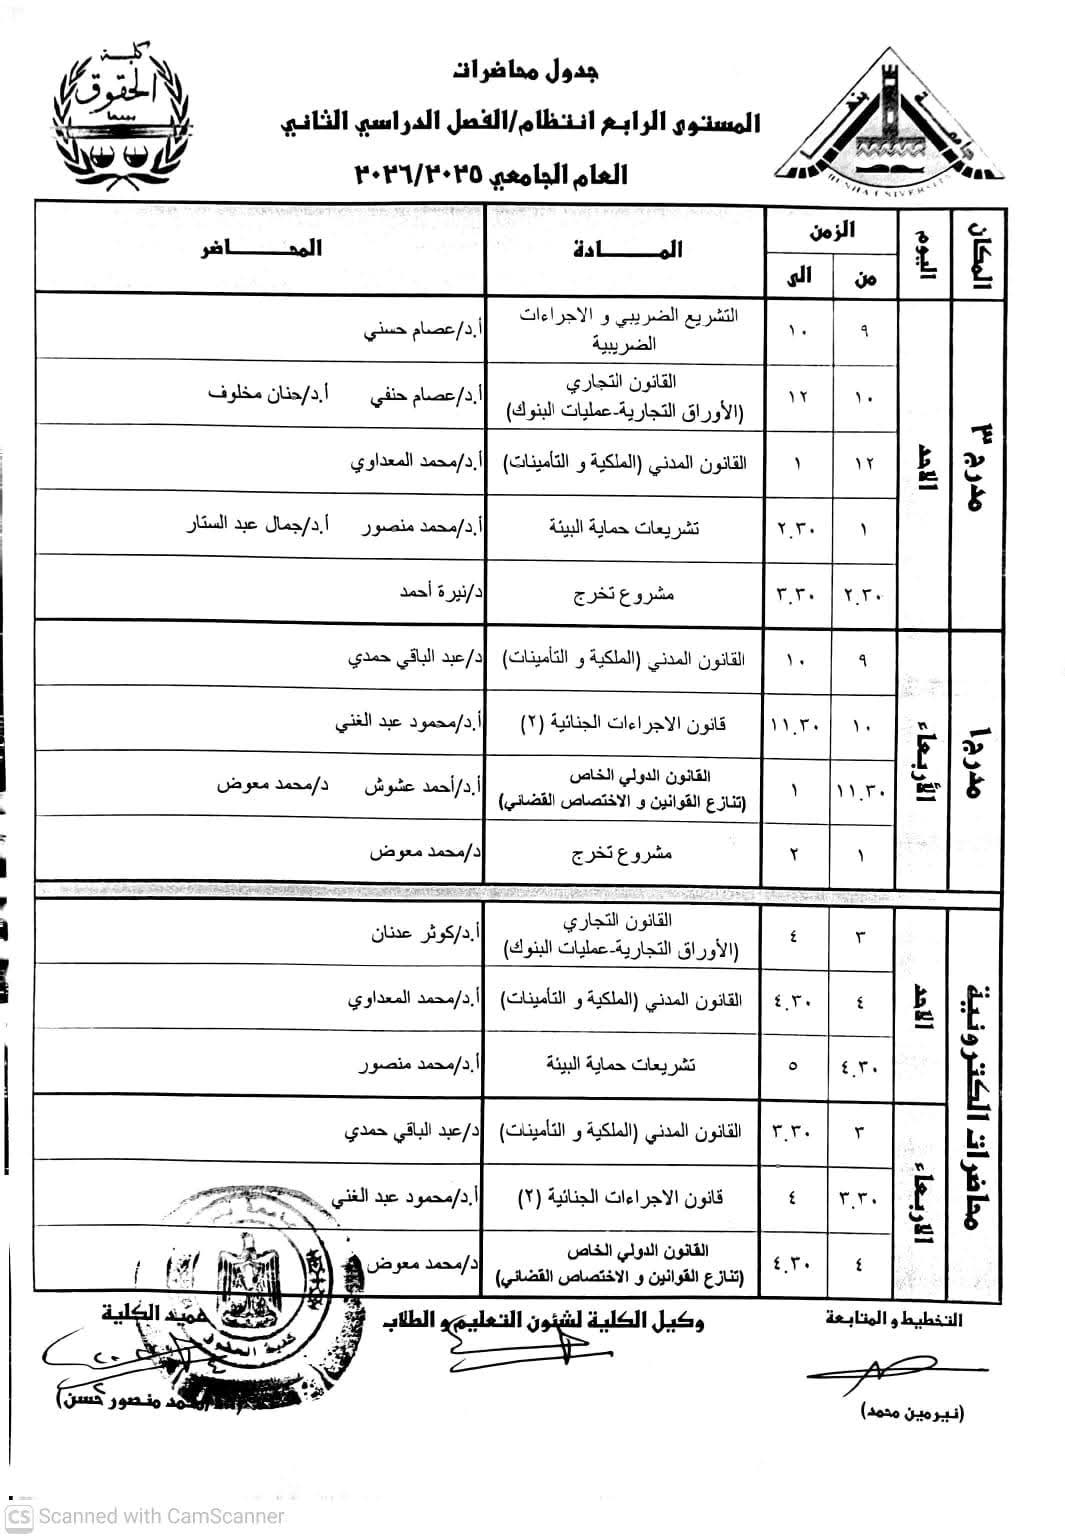 كلية
الحقوق
بنها
جامعة بنها
BENHA UNIVERSITY
جدول محاضرات
المستوى الرابع انتظام/الفصل الدراسي الثاني
العام الجامعي ٢٠٢٦/٢٠٢٥
المكان اليوم الزمن المــــــادة المحــــــاضر
من الى
مدرج ٣
الاحد
٩ ١٠ التشريع الضريبي و الاجراءات أ.د/عصام حسني
الضريبية
١٠ ١٢ القانون التجاري أ.د/عصام حنفي أ.د/حنان مخلوف
(الأوراق التجارية-عمليات البنوك)
١٢ ١ القانون المدني (الملكية و التأمينات) أ.د/محمد المعداوي
١ ٢.٣٠ تشريعات حماية البيئة أ.د/محمد منصور أ.د/جمال عبد الستار
٢.٣٠ ٣.٣٠ مشروع تخرج د/نيرة أحمد
مدرج ١
الأربعاء
٩ ١٠ القانون المدني (الملكية و التأمينات) د/عبد الباقي حمدي
١٠ ١١.٣٠ قانون الاجراءات الجنائية (٢) أ.د/محمود عبد الغني
١١.٣٠ ١ القانون الدولي الخاص أ.د/أحمد عشوش د/محمد معوض
(تنازع القوانين و الاختصاص القضائي)
١ ٢ مشروع تخرج د/محمد معوض
محاضرات الكترونية
الاحد
٣ ٤ القانون التجاري أ.د/كوثر عدنان
(الأوراق التجارية-عمليات البنوك)
٤ ٤.٣٠ القانون المدني (الملكية و التأمينات) أ.د/محمد المعداوي
٤.٣٠ ٥ تشريعات حماية البيئة أ.د/محمد منصور
الاربعاء
٣ ٣.٣٠ القانون المدني (الملكية و التأمينات) د/عبد الباقي حمدي
٣.٣٠ ٤ قانون الاجراءات الجنائية (٢) أ.د/محمود عبد الغني
٤ ٤.٣٠ القانون الدولي الخاص د/محمد معوض
(تنازع القوانين و الاختصاص القضائي)
التخطيط و المتابعة وكيل الكلية لشئون التعليم و الطلاب عميد الكلية
كلية الحقوق
(نيرمين محمد) محمد منصور حسن)
CS Scanned with CamScanner